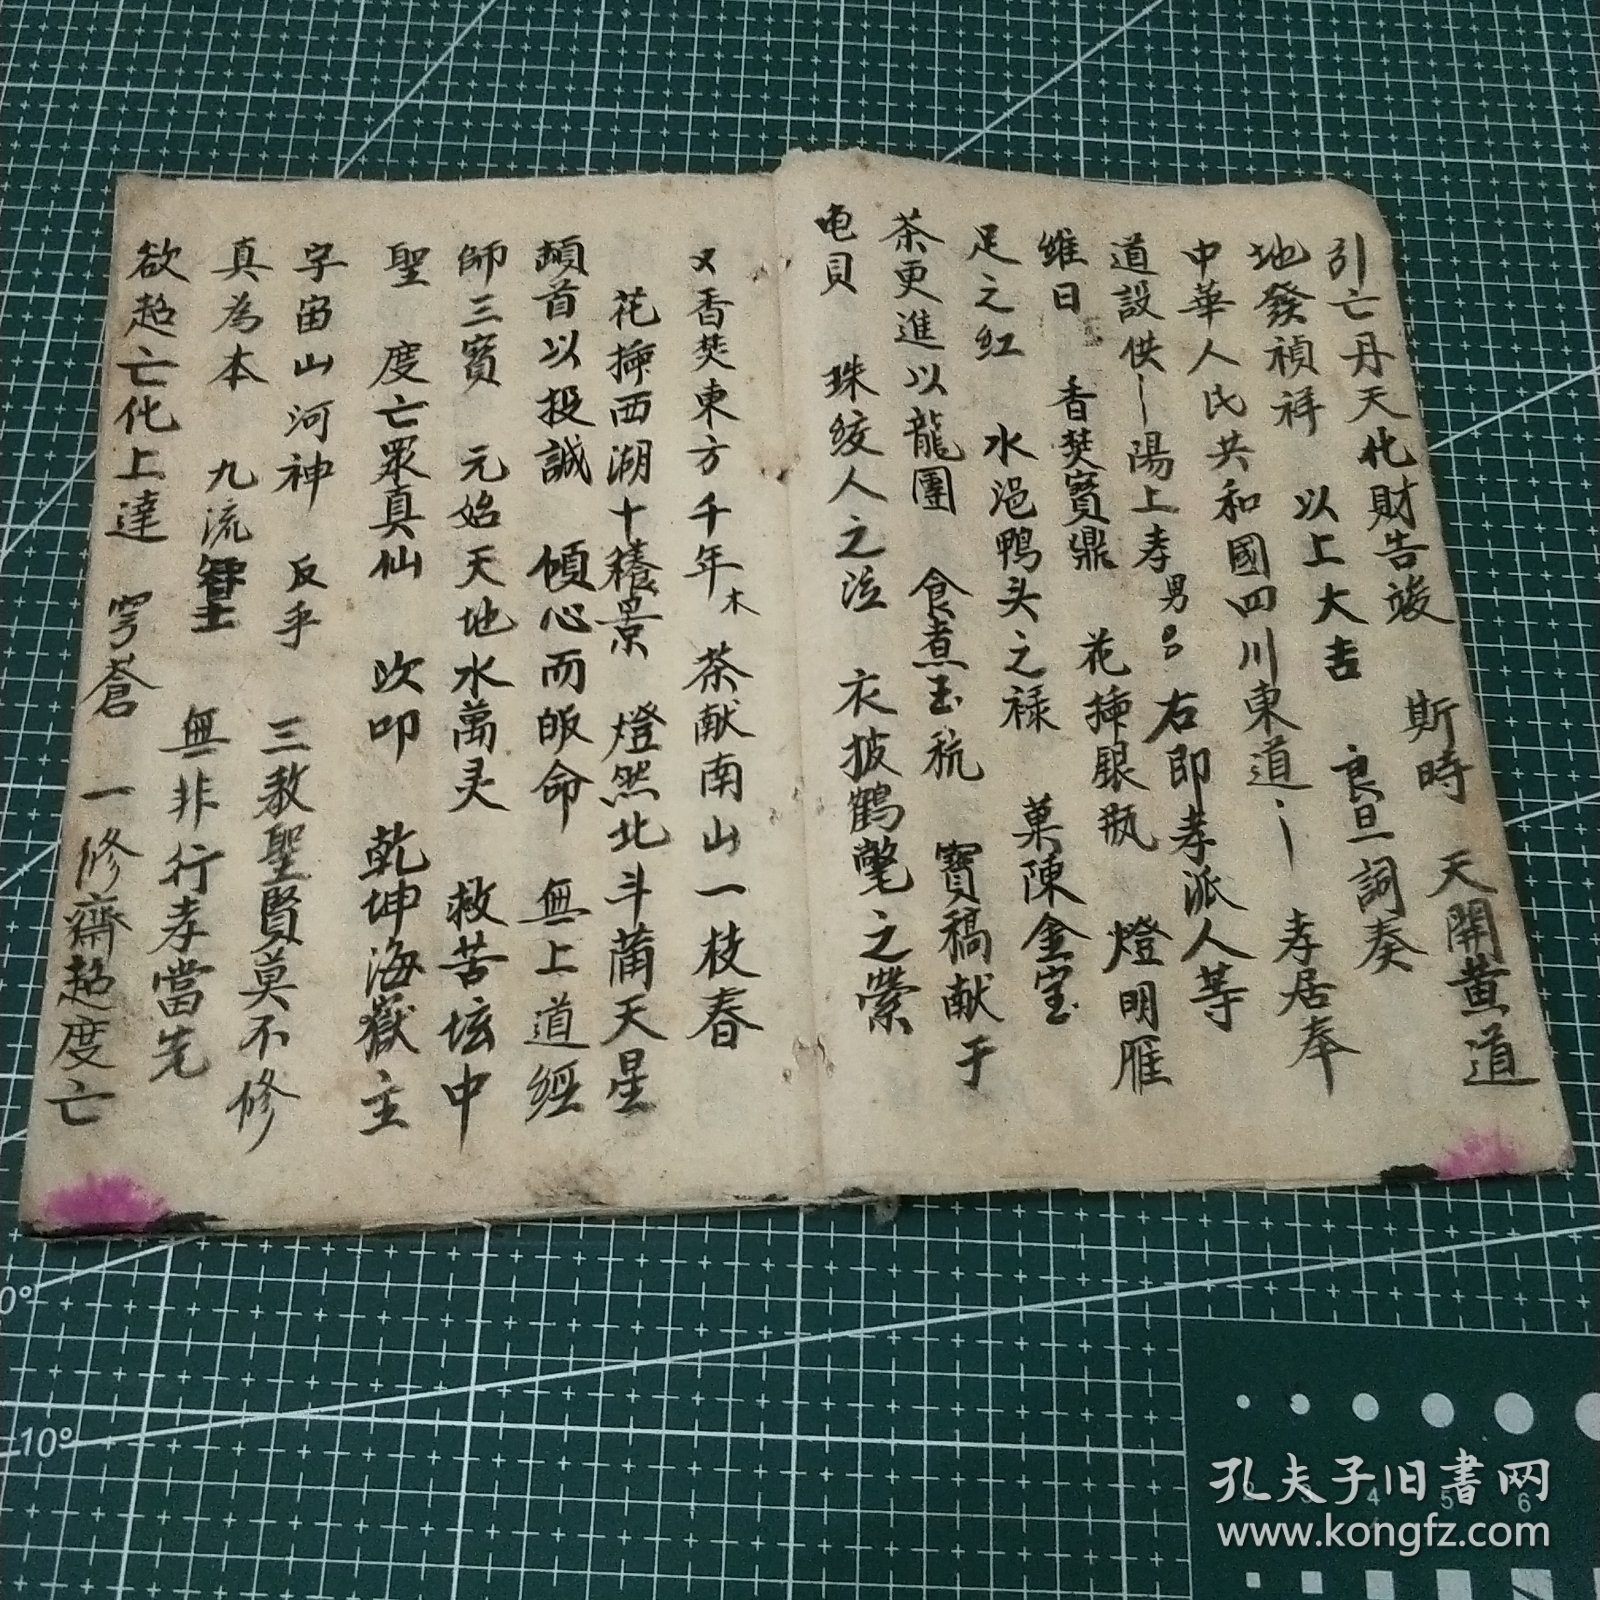 引亡丹天化財告竣 斯時 天開黄道
地發禎祥 以上大吉 良旦詞奏
中華人民共和國四川東道 孝居奉
道設供 陽上孝男 右即孝派人等
維日 香焚寳鼎 花揷銀瓶 燈明雁
足之红 水浥鴨头之禄 菓陳金宝
茶更進以龍團 食煮玉秔 寶稿献于
电貝 珠绞人之泣 衣披鶴氅之縈
又香焚東方千年木 茶献南山一枝春
花揷西湖十穟景 燈然北斗蒲天星
頡首以投誠 傾心而皈命 無上道經
師三寶 元始天地水萬灵 救苦坛中
聖 度亡眾真仙 吹叩 乾坤海嶽主
字宙山河神 反乎 三教聖賢莫不修
真為本 九流 無非行孝當先
欲超亡化上達 穹蒼 一修齋超度亡
0°
10°
2 3 4 5 6
孔夫子旧書网
www.kongfz.com